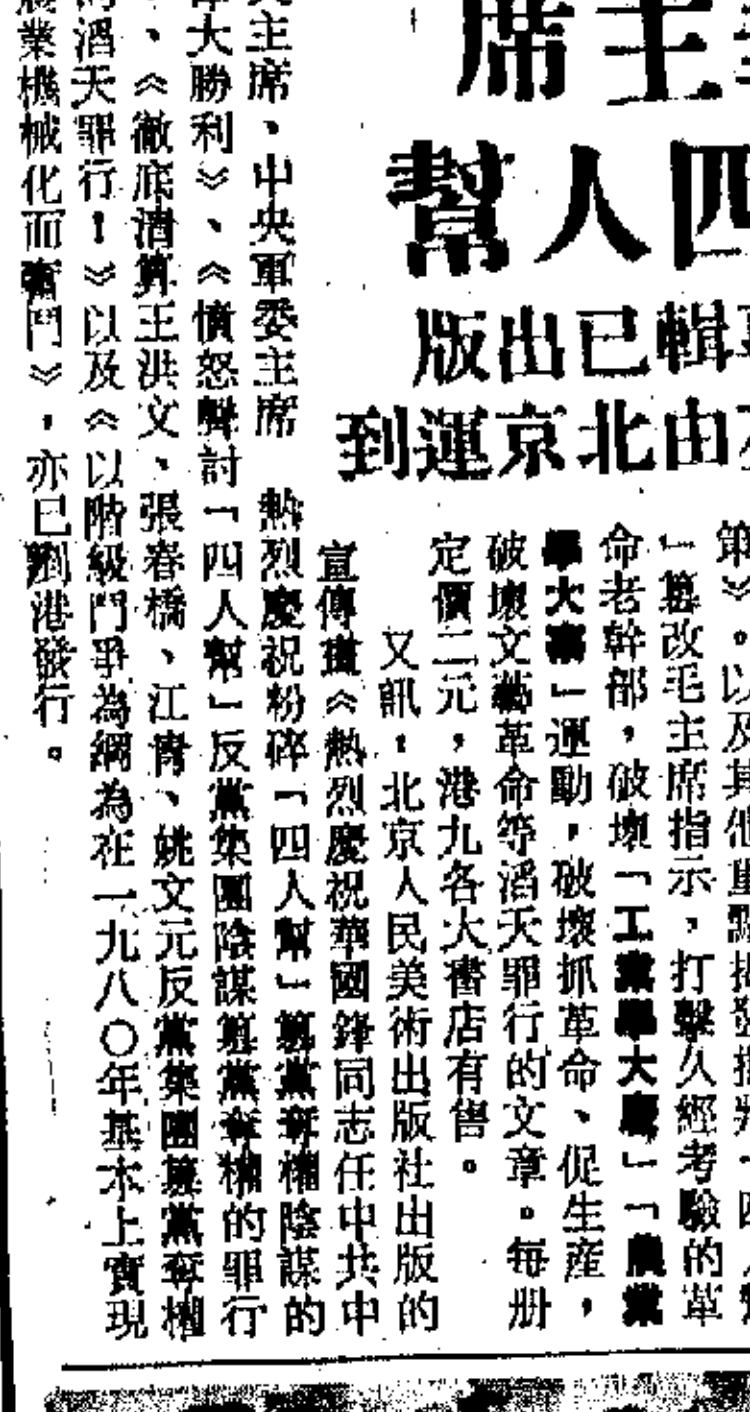 主席
四人幫
輯已出版
由北京運到
第》。以及其他重點揭發批判「四人幫
」篡改毛主席指示，打擊久經考驗的革
命老幹部，破壞「工業學大慶」「農業
學大寨」運動，破壞抓革命、促生産，
破壞文藝革命等滔天罪行的文章。每册
定價二元，港九各大書店有售。
又訊，北京人民美術出版社出版的
宣傳畫《熱烈慶祝華國鋒同志任中共中
央主席、中央軍委主席　熱烈慶祝粉碎「四人幫」篡黨奪權陰謀的
偉大勝利》、《憤怒聲討「四人幫」反黨集團陰謀篡黨奪權的罪行
、《徹底清算王洪文、張春橋、江青、姚文元反黨集團篡黨奪權
的滔天罪行！》以及《以階級鬥爭為綱為在一九八〇年基本上實現
農業機械化而奮鬥》，亦已到港發行。